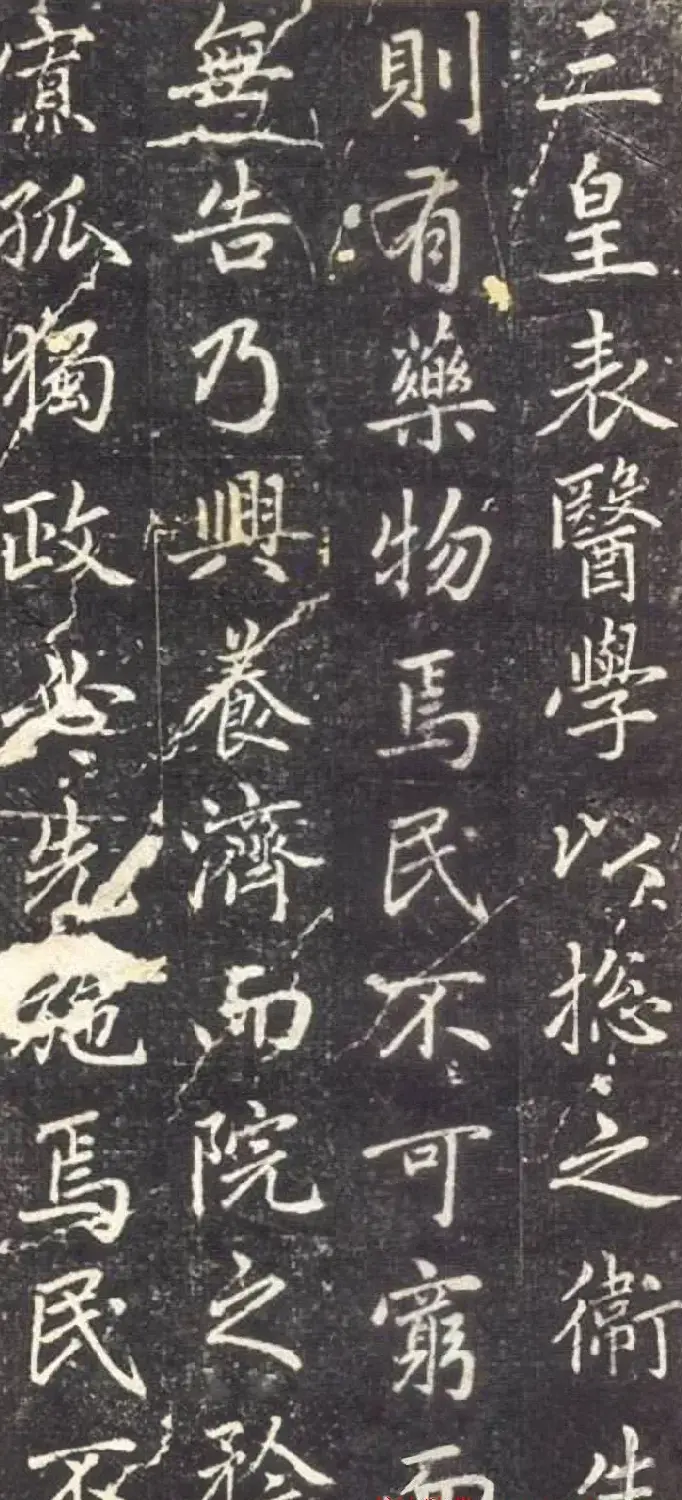 三皇表醫學以揔之衛生
則有藥物焉民不可窮而
無告乃興養濟而院之矜
寡孤獨政必先施焉民不